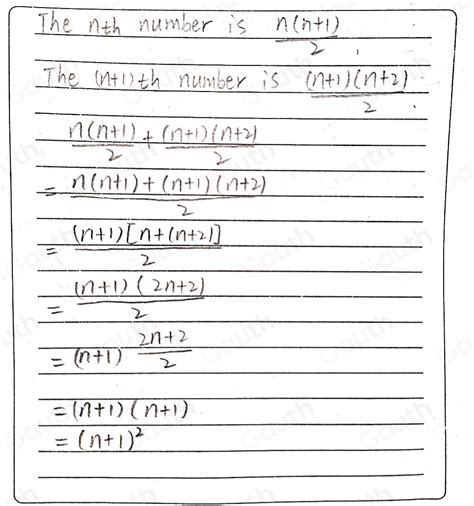 The nth number is n(n+1)/2 .
The (n+1)th number is (n+1)(n+2)/2 .
n(n+1)/2 + (n+1)(n+2)/2
= n(n+1)+(n+1)(n+2)/2
= (n+1)[n+(n+2)]/2
= (n+1)(2n+2)/2
= (n+1) 2n+2/2
= (n+1)(n+1)
= (n+1)²